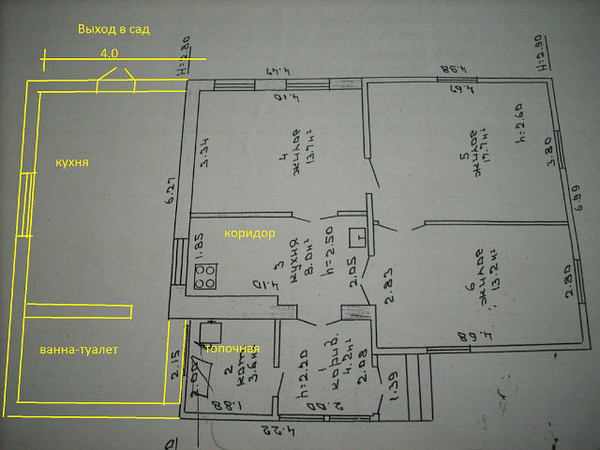 Выход в сад
4.0
H=2.80
4.10
4.98
4.67
H=2.90
кухня
3.34
4
жилое
13.7м²
5
жилое
17.7м²
h=2.60
3.80
6.99
6.27
1.85
коридор
3
кухня
8.0м²
h=2.50
2.05
2.83
6
жилое
13.2м²
2.80
4.68
ванна-туалет
2.15
топочная
2.00
2
3.6м²
1.88
h=2.20
1
корид.
4.2м²
2.08
2.00
1.39
4.22